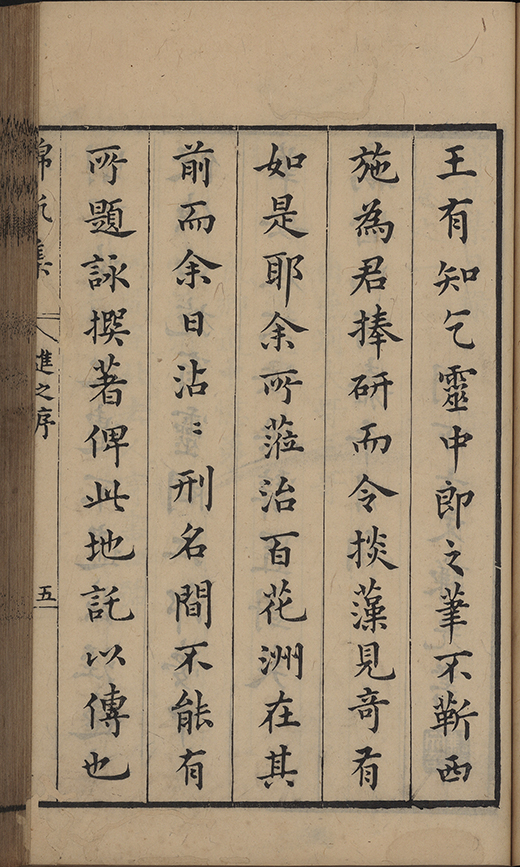 王有知乞靈中郎之筆不靳西
施為君捧研而令掞藻見奇有
如是耶余所蒞治百花洲在其
前而余日沾〻刑名間不能有
所題詠撰著俾此地託以傳也
錦帆集
進之序
五